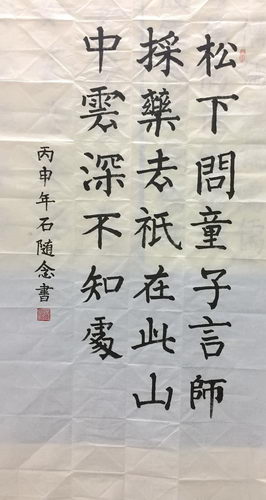 松下問童子言師
採藥去祇在此山
中雲深不知處
丙申年石随念書